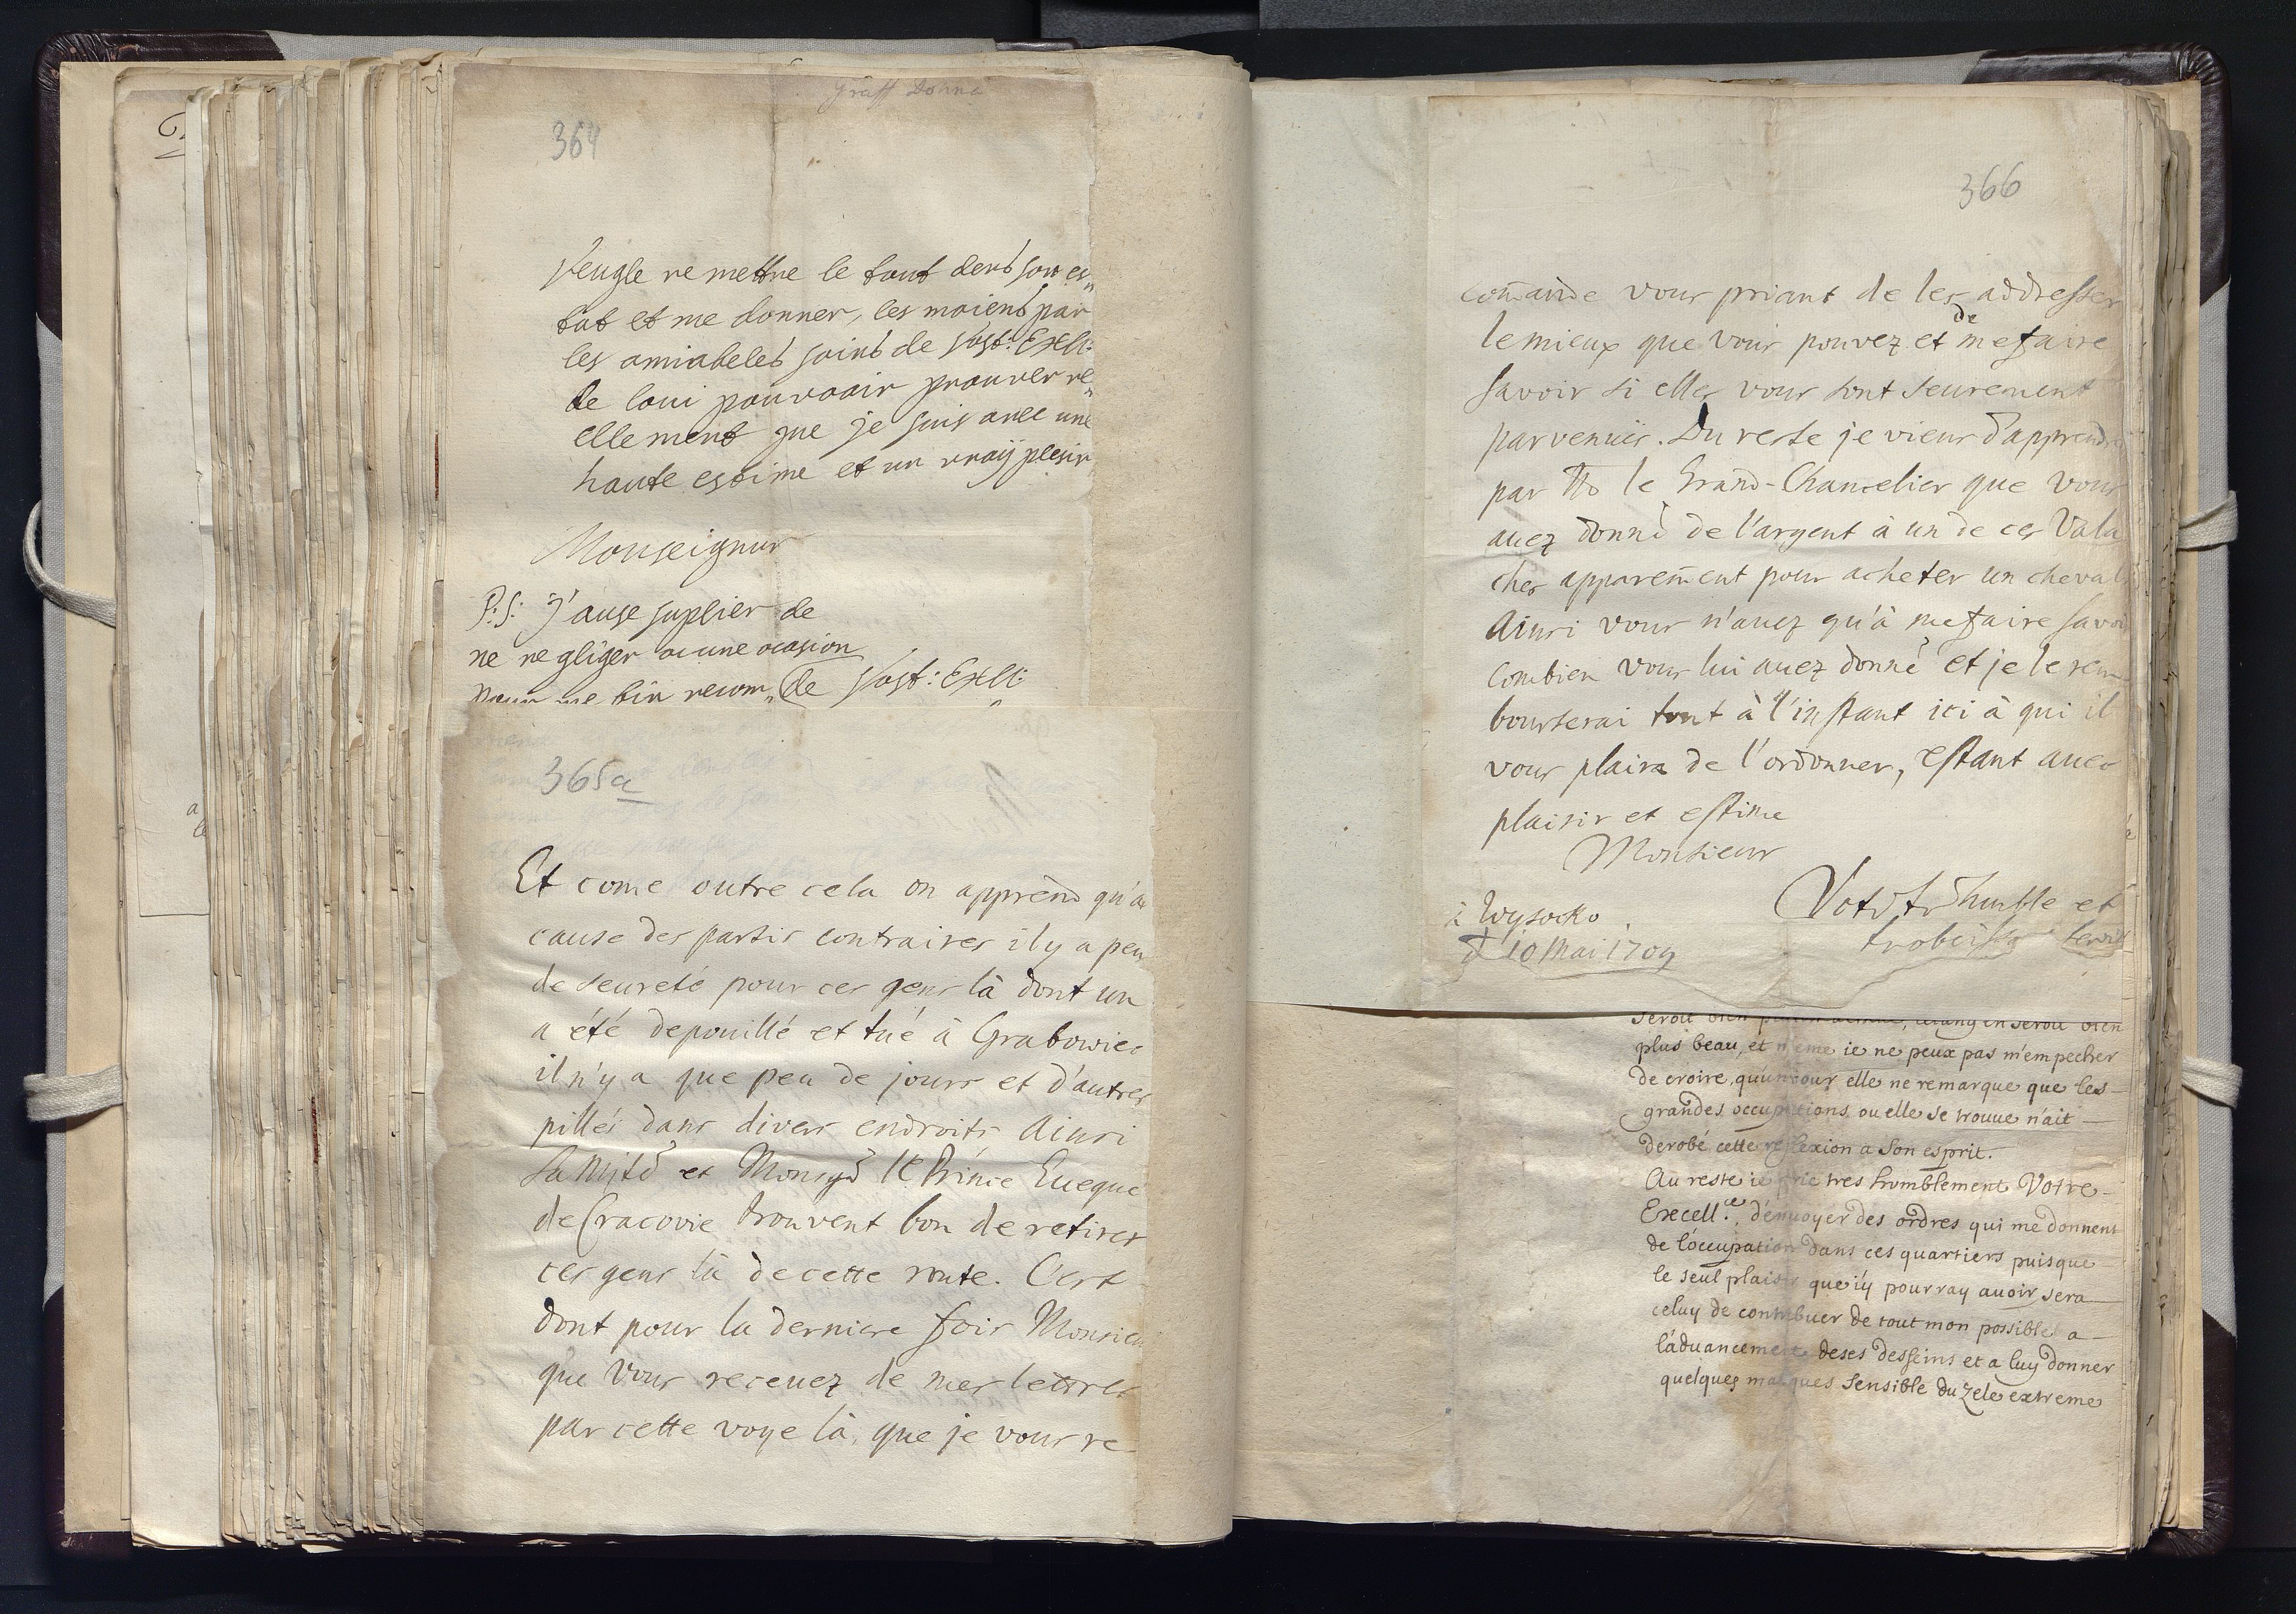 Graff Dohna
364
veugle remettre le tout dens son es„
tat et me donner, les moiens par
les amiabeles soins de Vost: Exll:
de loui pouvoair prouver re„
ellement que je suis avec une
haute estime et un vraij plesir
Monseignur
P:S: J'ause suplier de
ne negliger aucune ocasion
pour me bin recom„ de Vost: Exll:
365a
Et come outre cela on apprend qu'a
cause des partis contraires il y a peu
de seureté pour ces gens là dont un
a été depouillé et tué à Grabowiec
il n'y a que peu de jours et d'autres
pillés dans divers endroits Ainsi
Sa Mjté et Monsgr le Prince Eveque
de Cracovie trouvent bon de retirer
ces gens là de cette route. C'est
dont pour la derniere fois Monsieur
que vous recevez de mes lettres
par cette voye là, que je vous re
366
comande vous priant de les addresser
le mieux que vous pouvez et de me faire
savoir si elles vous sont seurement
parvenües. Du reste je viens d'apprendre
par Mr le Grand-Chancelier que vous
avez donné de l'argent à un de ces Vala
ches apparement pour acheter un cheval
Ainsi vous n'avez qu'à me faire savoir
combien vous lui avez donné et je le rem
bourserai tout à l'instant ici à qui il
vous plaira de l'ordonner, estant avec
plaisir et estime
Monsieur
à Wysocko
d 10 Mai 1704
Vot. tr. humble et
tr obeiss. servit
plus beau, et meme ie ne peux pas m'empecher
de croire, qu'un jour elle ne remarque que les
grandes occupations ou elle se trouve n'ait
derobé cette reflexion a Son esprit.
Au reste ie prie tres humblement Votre
Excell.ce, d'envoyer des ordres qui me donnent
de l'occupation dans ces quartiers puisque
le seul plaisir que i'y pourray avoir sera
celuy de contribuer de tout mon possible a
l'advancement de ses desseins et a luy donner
quelques marques sensible du zele extreme